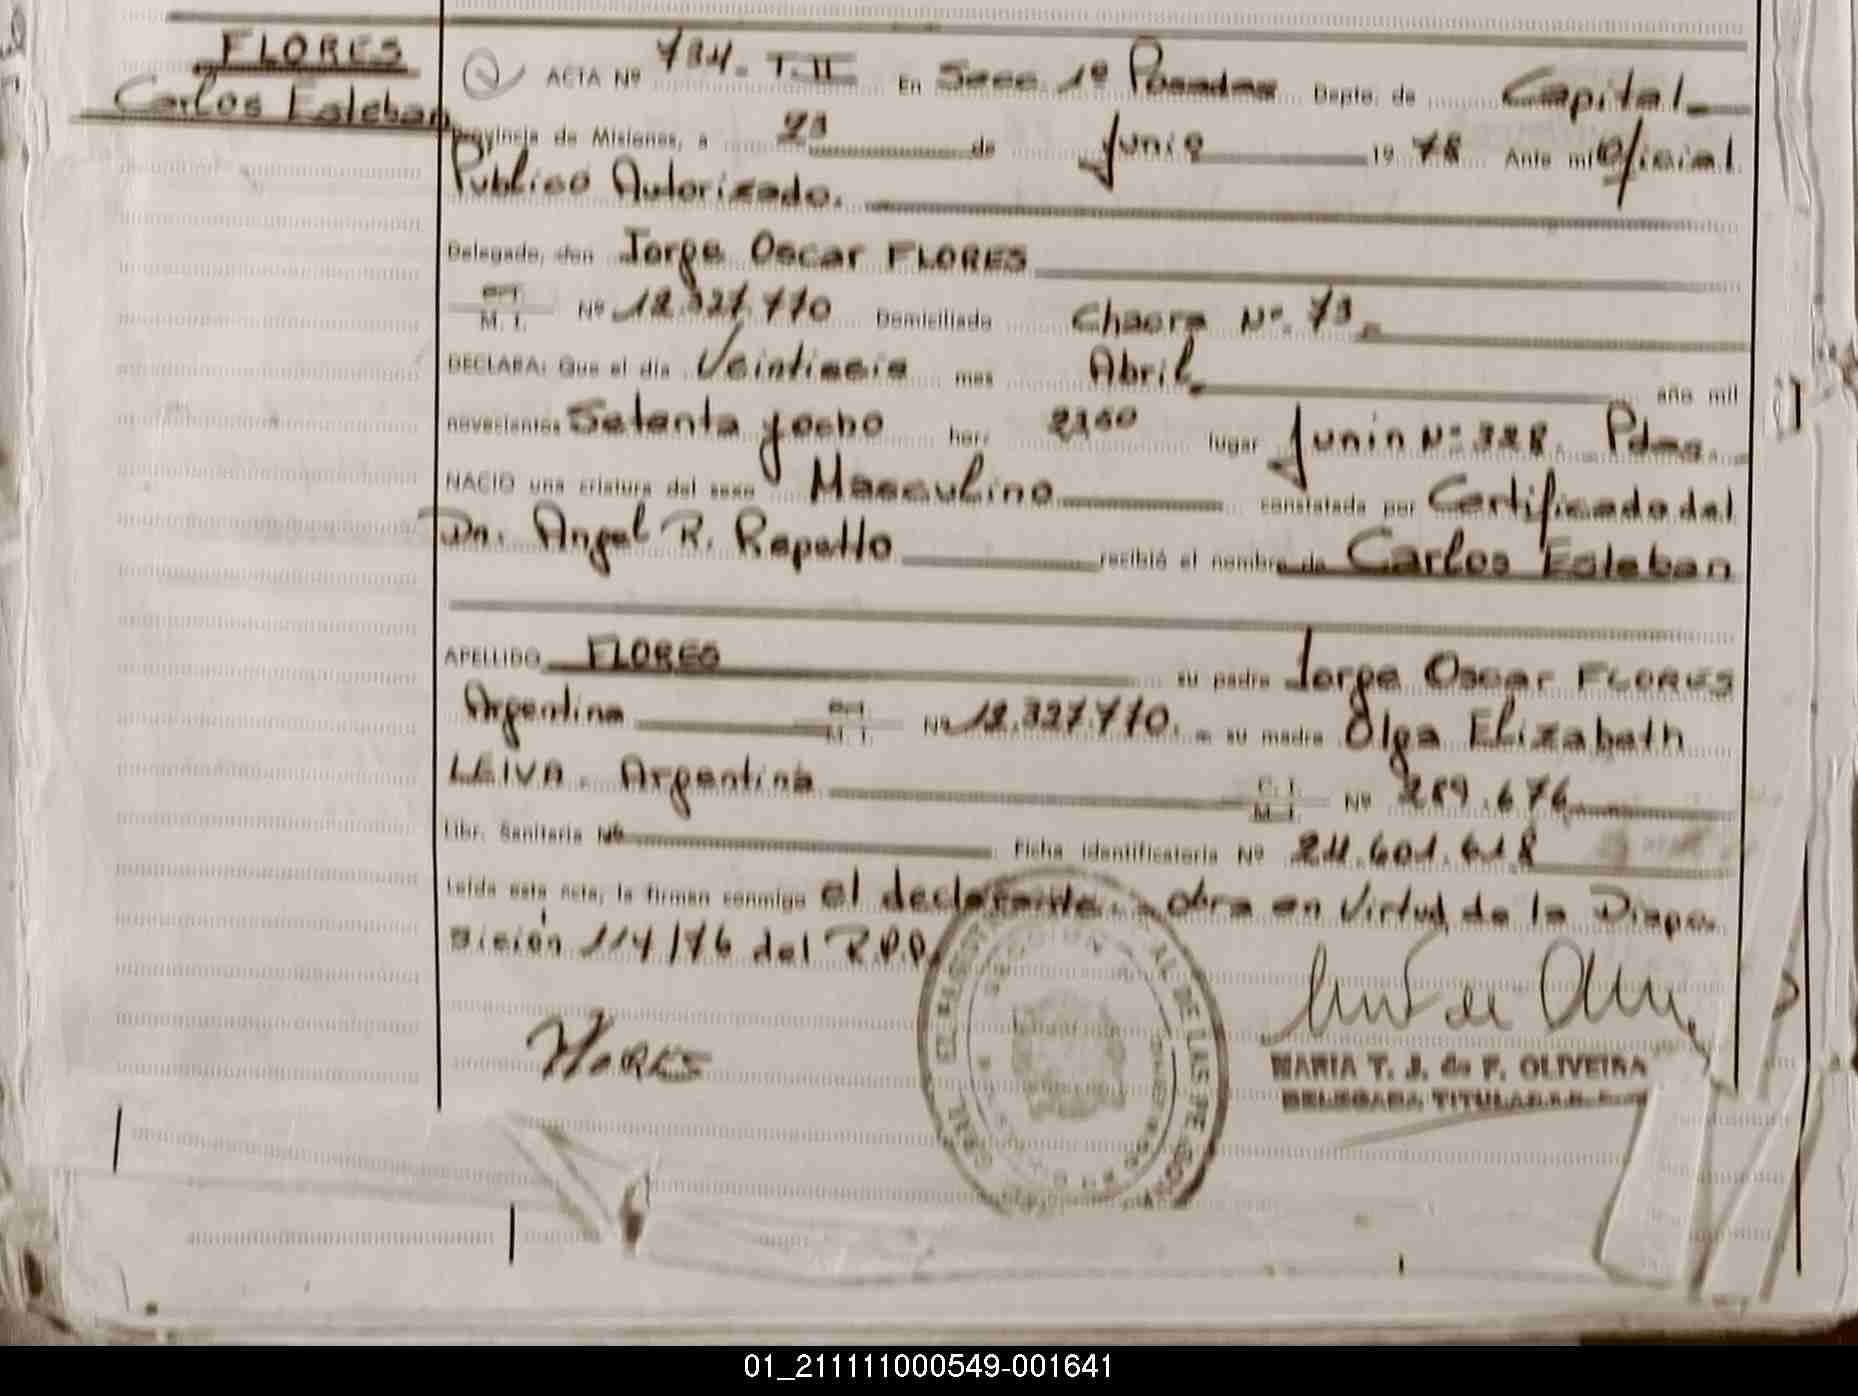 FLORES
Carlos Esteban
ACTA Nº 734. T.II En Secc 1º Posadas Depto. de Capital
Provincia de Misiones, a 23 de Junio 19 78 Ante mí Oficial
Publico Autorizado.
Delegado, don Jorge Oscar FLORES
M. I. Nº 12.327.770 Domiciliado Chacra Nº. 73
DECLARA: Que el día Veintiseis mes Abril año mil
novecientos Setenta y ocho hora lugar Junin Nº 328. Pdas.
NACIO una criatura del sexo Masculino constatada por Certificado del
Dr. Angel R. Repetto recibió el nombre de Carlos Esteban
APELLIDO FLORES su padre Jorge Oscar FLORES
Argentina M. I. Nº 12.327.770. su madre Olga Elizabeth
LEIVA. Argentina C. I. M. I. Nº 289.676
Libr. Sanitaria Nº Ficha Identificatoria Nº 24.601.618
Leída esta acta, la firman conmigo el declarante. obra en Virtud de la Dispo
sición 114/76 del R.P.P.
FLORES
MARIA T. J. de F. OLIVEIRA
DELEGADA TITULAR
01_211111000549-001641